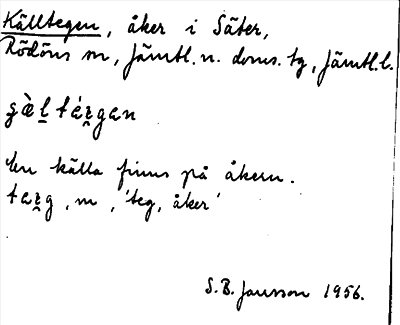 Källtegen, åker i Säter,
Rödöns sn, Jämtl. n. doms. tg, Jämtl. l.
En källa finns på åkern.
m, 'teg, åker'
S.B. Jansson 1956.